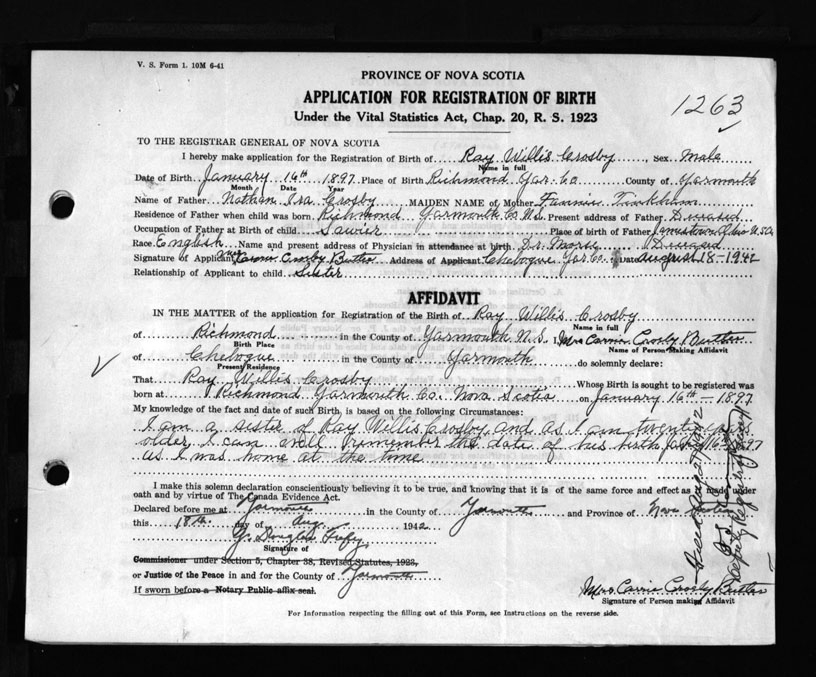 V. S. Form 1. 10M 6-41
PROVINCE OF NOVA SCOTIA
APPLICATION FOR REGISTRATION OF BIRTH
1263
Under the Vital Statistics Act, Chap. 20, R. S. 1923
TO THE REGISTRAR GENERAL OF NOVA SCOTIA
I hereby make application for the Registration of Birth of Ray Willis Crosby, sex Male
Name in full
Date of Birth January 16th 1897 Place of Birth Richmond Yar. Co County of Yarmouth
Month Date Year
Name of Father Nathan Ira Crosby MAIDEN NAME of Mother Fannie
Residence of Father when child was born Richmond Yarmouth Co N.S. Present address of Father Deceased
Occupation of Father at Birth of child Place of birth of Father Jamestown Ohio U.S.A.
Race English Name and present address of Physician in attendance at birth Dr. Morse Deceased
Signature of Applicant Mrs Carrie Crosby Butler Address of Applicant Chebogue Yar Co. Date August 18-1942
Relationship of Applicant to child Sister
AFFIDAVIT
IN THE MATTER of the application for Registration of the Birth of Ray Willis Crosby
Name in full
of Richmond in the County of Yarmouth N.S. I, Mrs Carrie Crosby Butler
Birth Place Name of Person Making Affidavit
of Chebogue in the County of Yarmouth do solemnly declare:
Present Residence
That Ray Willis Crosby Whose Birth is sought to be registered was
born at Richmond Yarmouth Co. Nova Scotia on January 16th - 1897
My knowledge of the fact and date of such Birth, is based on the following Circumstances:
I am a sister of Ray Willis Crosby and as I am twenty years
older I can well remember the date of his birth Jan 16th 1897
as I was home at the time
I make this solemn declaration conscientiously believing it to be true, and knowing that it is of the same force and effect as if made under
oath and by virtue of The Canada Evidence Act.
Declared before me at Yarmouth in the County of Yarmouth and Province of Nova Scotia
this 18th day of Aug. 1942
Signature of
Commissioner under Section 5, Chapter 38, Revised Statutes, 1923,
or Justice of the Peace in and for the County of Yarmouth
If sworn before a Notary Public affix seal.
Mrs. Carrie Crosby Butler
Signature of Person making Affidavit
Deputy Registrar General
For Information respecting the filling out of this Form, see Instructions on the reverse side.